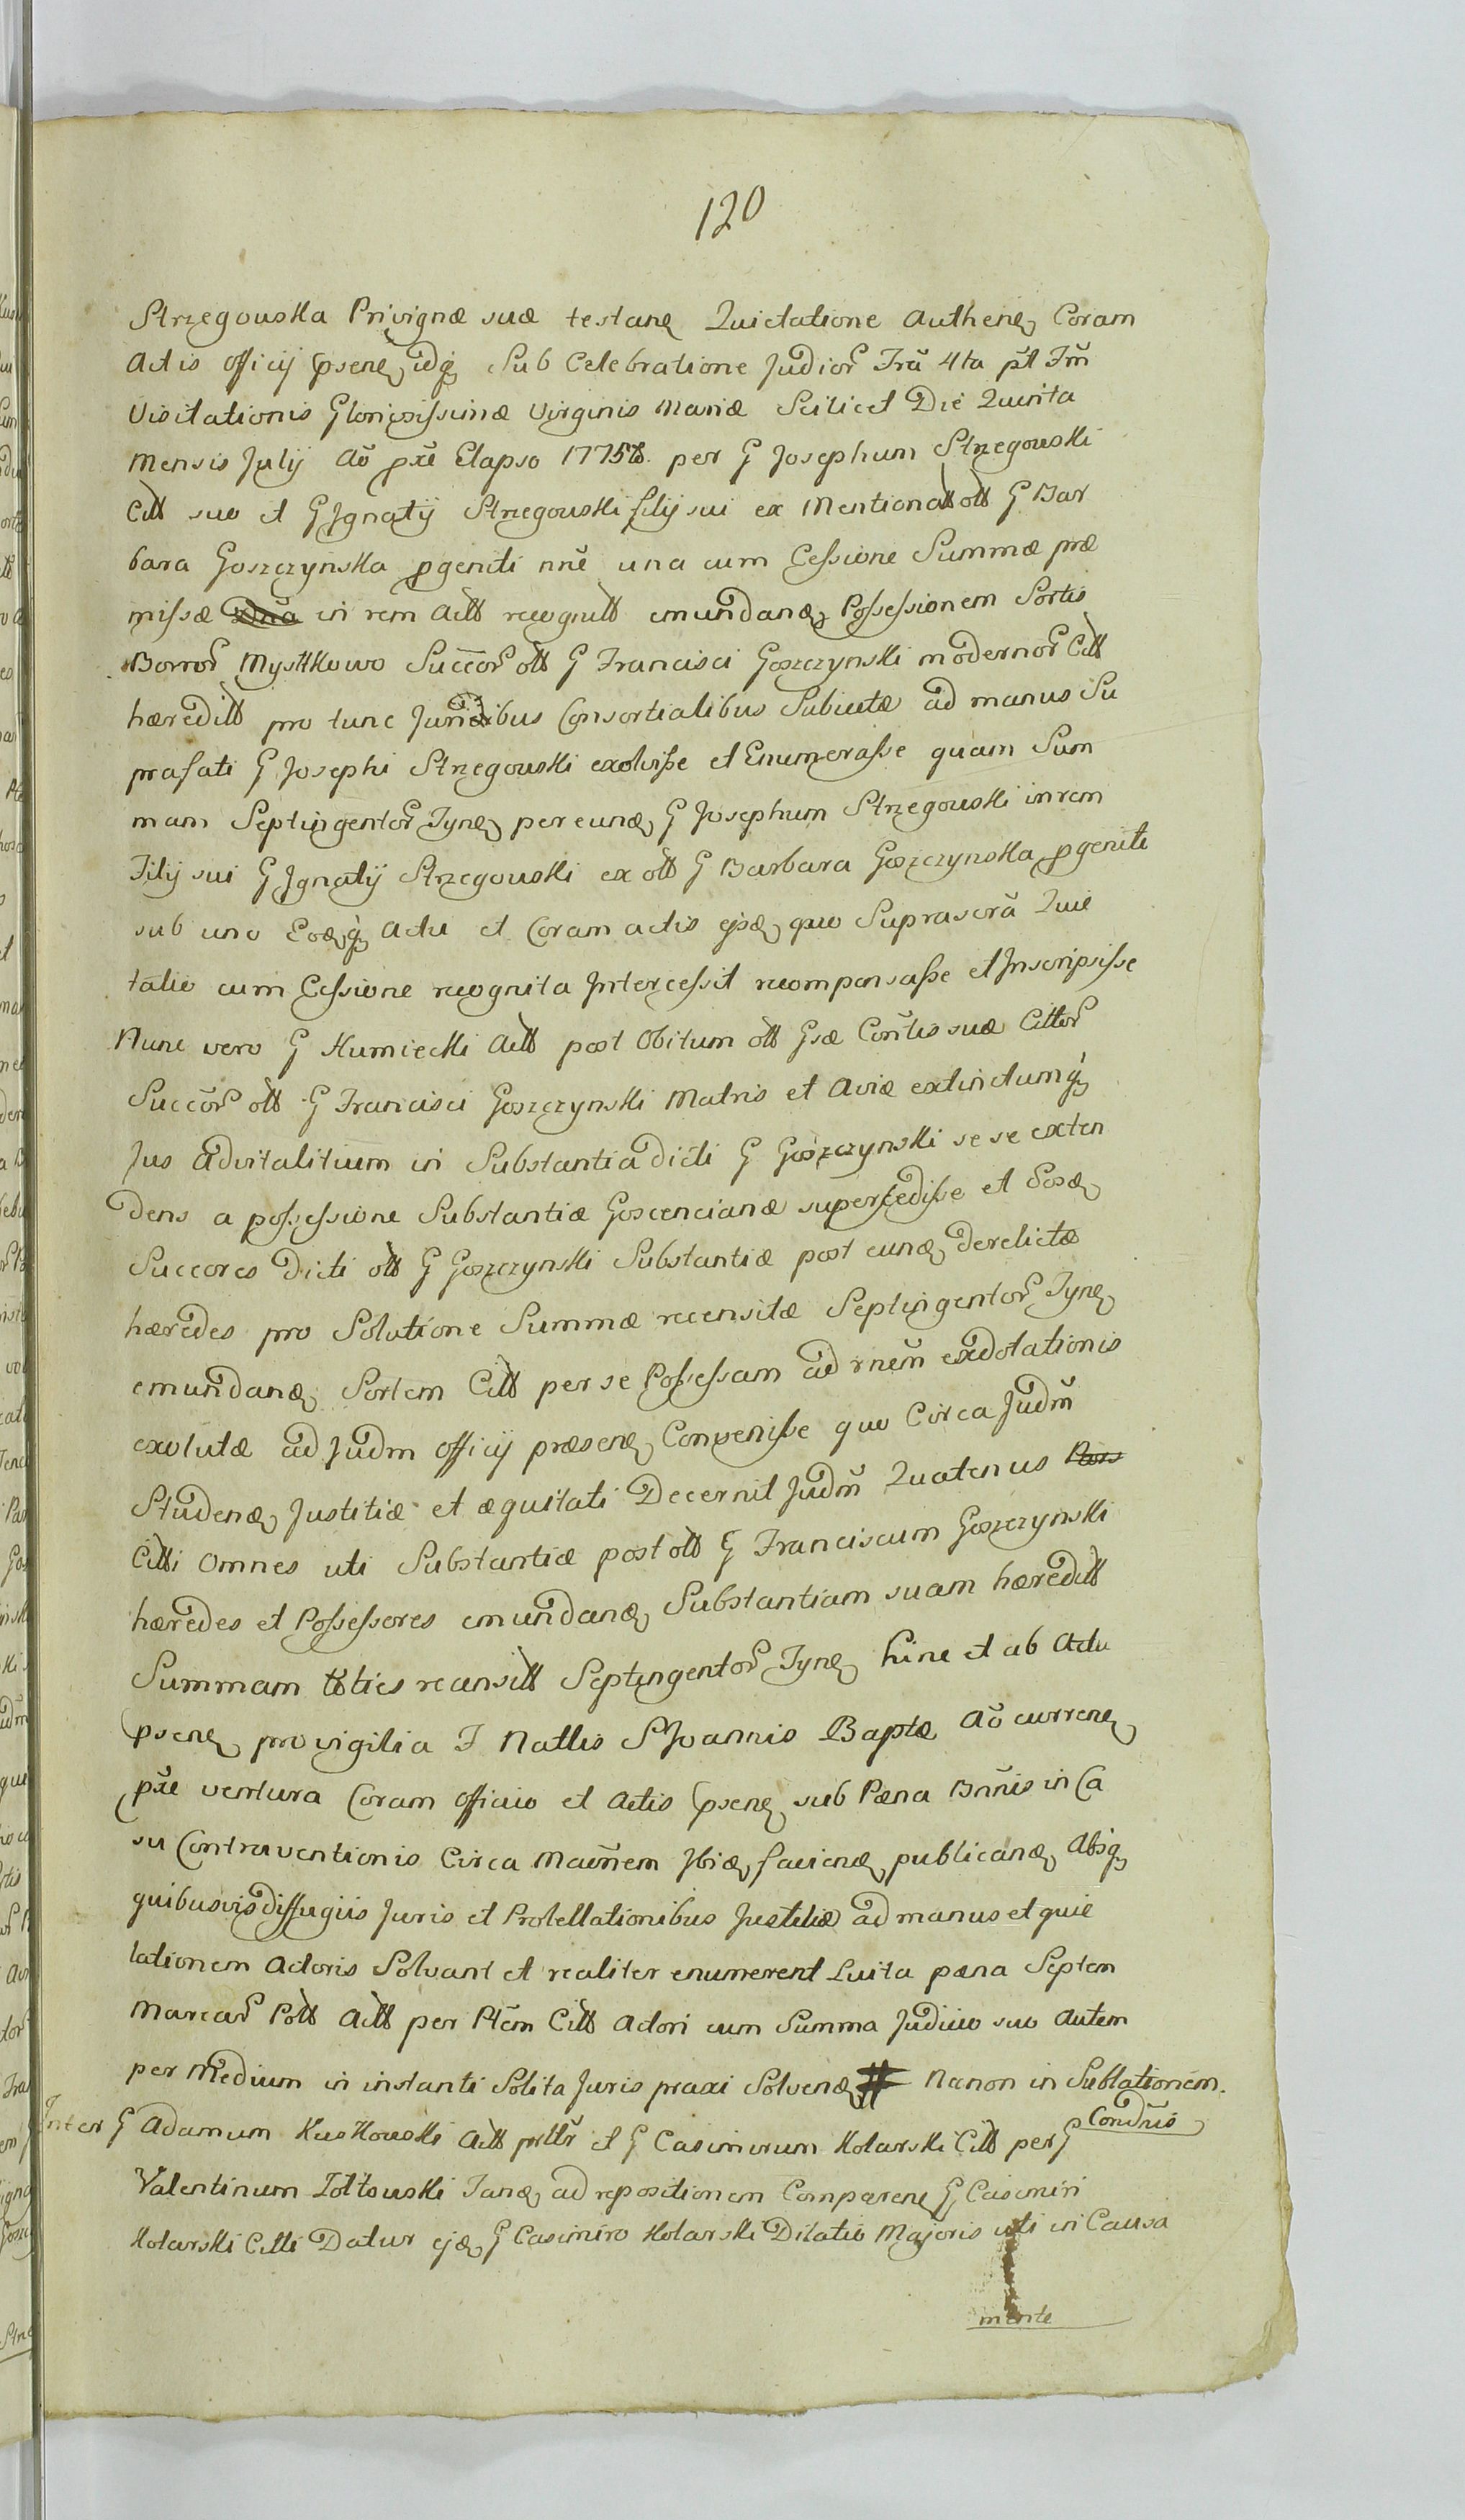 120
Strzegouska Privignæ suæ testanę Quictatione Authenę Coram
Actis officij psenę idqȝ Sub Celebratione Judior Fru 4ta pt Fm
Visitationis Gloriosissimæ Virginis Mariæ Scilicet Die Quinta
Mensis Julij Ao pxe Elapso 1775to per G Josephum Strzegouski
Citt suo et G Jgnatij Strzegouski filij sui ex Mentionatt ott G Bar
bara Goszczynska pgeniti nne una cum Cessione Summæ præ
missæ in rem Actt recognitt emundanæ Possessionem Sortis
Bonor Mystkowo Succor ott G Francisci Goszczynski modernor Citt
hæreditt pro tunc Juribus Consortialibus Subiectæ ad manus Su
prafati G Josephi Strzegouski exolvisse et Enumerasse quam Sum
mam Septingentor Tynę per eunæ G Josephum Strzegouski in rem
Filij sui G Jgnatij Strzegouski ex ott G Barbara Goszczynska pgeniti
sub uno Eoæqȝ Actu et Coram actis ejsæ quo Suprascra Quie
tatio cum Cessione recognita Jntercessit recompensasse et Jnscripsisse
Nunc vero G Kumiecki Actt post Obitum ott Gsæ Contis suæ Cittor
Succor ott G Francisci Goszczynski Matris et Aviæ extinctumqȝ
Jus Advitalitium in Substantia dicti G Goszczynski se se exten
dens a possessione Substantiæ Goscencianæ supersedisse et Eosæ
Succores Dicti ott G Goszczynski Substantiæ post eunæ derelictæ
hæredes pro Solutione Summæ recensitæ Septingentor Tynę
emundanæ Sortem Citt per se Possessam ad rnem exdotationis
exolutæ ad Judm officij præsenę Convenisse quo Circa Judm
Studenę Justitiæ et æquitati Decernit Judm Quatenus
Citti Omnes uti Substantiæ post ott G Franciscum Goszczynski
hæredes et Possessores emundanæ Substantiam suam hæreditt
Summam toties recensitt Septingentor Tynę hinc et ab Actu
psenę pro vigilia F Natlis S Joannis Baptæ Ao currenę
pxe ventura Coram Officio et Actis psenę sub Pæna Bnnis in Ca
su Contraventionis Circa Maonem Jbiæ facienæ publicanæ Absqȝ
quibusvis diffugiis Juris et Protellationibus Justitiæ ad manus et quie
tationem Actoris Solvant et realiter enumerent Luita pæna Septem
Marcar Pott Actt per Ptem Citt Actori cum Summa Judicio suo Autem
per Medium in instanti Solita Juris praxi Solvenę # Nenon in Sublationem.
Condnis
Inter G Adamum Kuskouski Actt prttr et G Casimirum Kolarski Citt per G
Valentinum Zoltouski Tanæ ad repositionem Comparenę G Casimiri
Kolarski Citti Datur ejæ G Casimiro Kolarski Dilatio Majoris uti in Causa
mente